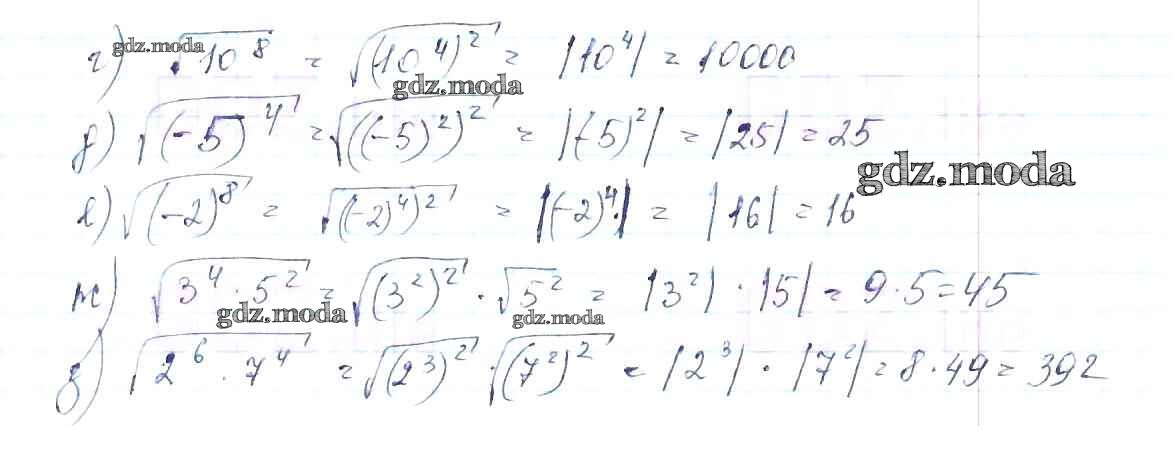 г) √(10⁸) = √((10⁴)²) = |10⁴| = 10000
gdz.moda
gdz.moda
д) √((-5)⁴) = √(((-5)²)²) = |(-5)²| = |25| = 25
gdz.moda
е) √((-2)⁸) = √(((-2)⁴)²) = |(-2)⁴| = |16| = 16
ж) √(3⁴ · 5²) = √((3²)²) · √(5²) = |3²| · |5| = 9 · 5 = 45
gdz.moda
gdz.moda
з) √(2⁶ · 7⁴) = √((2³)²) · √((7²)²) = |2³| · |7²| = 8 · 49 = 392